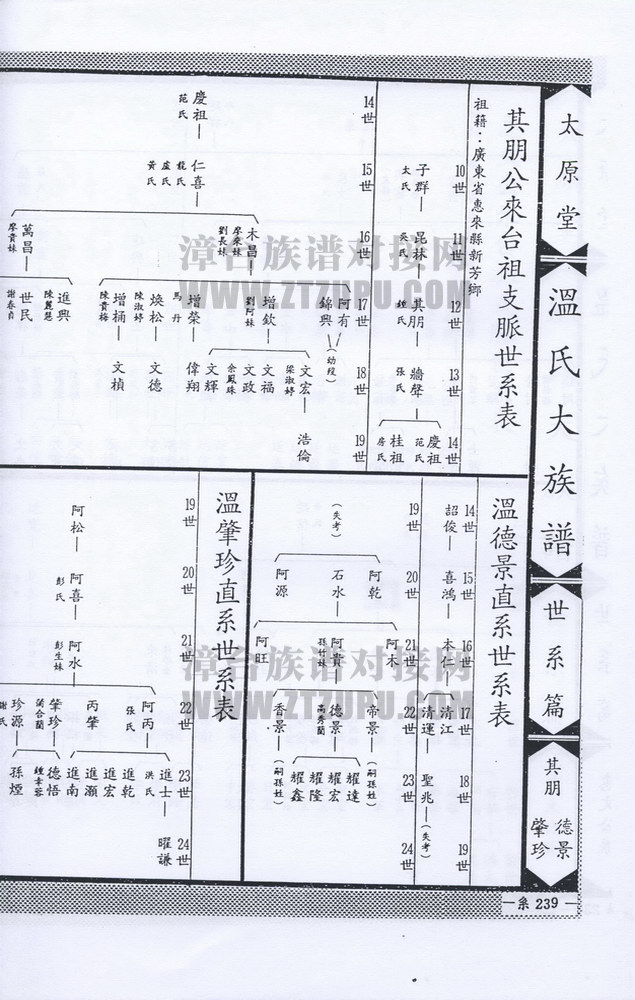 太原堂
溫氏大族譜
世系篇
其朋
德景
肇珍
系239
其朋公來台祖支脈世系表
祖籍：廣東省惠來縣新芳鄉
10世
11世
12世
13世
14世
子群
太氏
昆林
吳氏
其朋
鍾氏
張氏
慶祖
范氏
桂祖
房氏
14世
15世
16世
17世
18世
19世
慶祖
范氏
仁喜
龍氏
盧氏
黃氏
木昌
廖來妹
劉長妹
萬昌
廖貴妹
阿有
錦興
(幼歿)
增欽
劉阿妹
增榮
馬丹
煥松
陳淑婷
增桶
陳貴梅
進興
陳麗慧
世民
謝春貞
文宏
梁淑婷
文福
文政
余鳳珠
文輝
偉翔
文德
文楨
浩倫
溫德景直系世系表
14世
15世
16世
17世
18世
19世
詔俊
喜鴻
木仁
清江
清運
聖兆
(失考)
19世
20世
21世
22世
23世
24世
(失考)
阿乾
石水
阿源
阿木
阿貴
孫竹妹
阿旺
帝景
(嗣孫姓)
德景
高秀蘭
香景
(嗣孫姓)
耀達
耀宏
耀隆
耀鑫
溫肇珍直系世系表
19世
20世
21世
22世
23世
24世
阿松
阿喜
彭氏
阿水
彭生妹
阿丙
張氏
丙肇
肇珍
葉合蘭
珍源
謝氏
進士
洪氏
進乾
進宏
進灝
進南
德悟
鍾幸蓉
孫煙
曜謙
漳台族谱对接网
WWW.ZTZUPU.COM
漳台族谱对接网
WWW.ZTZUPU.COM